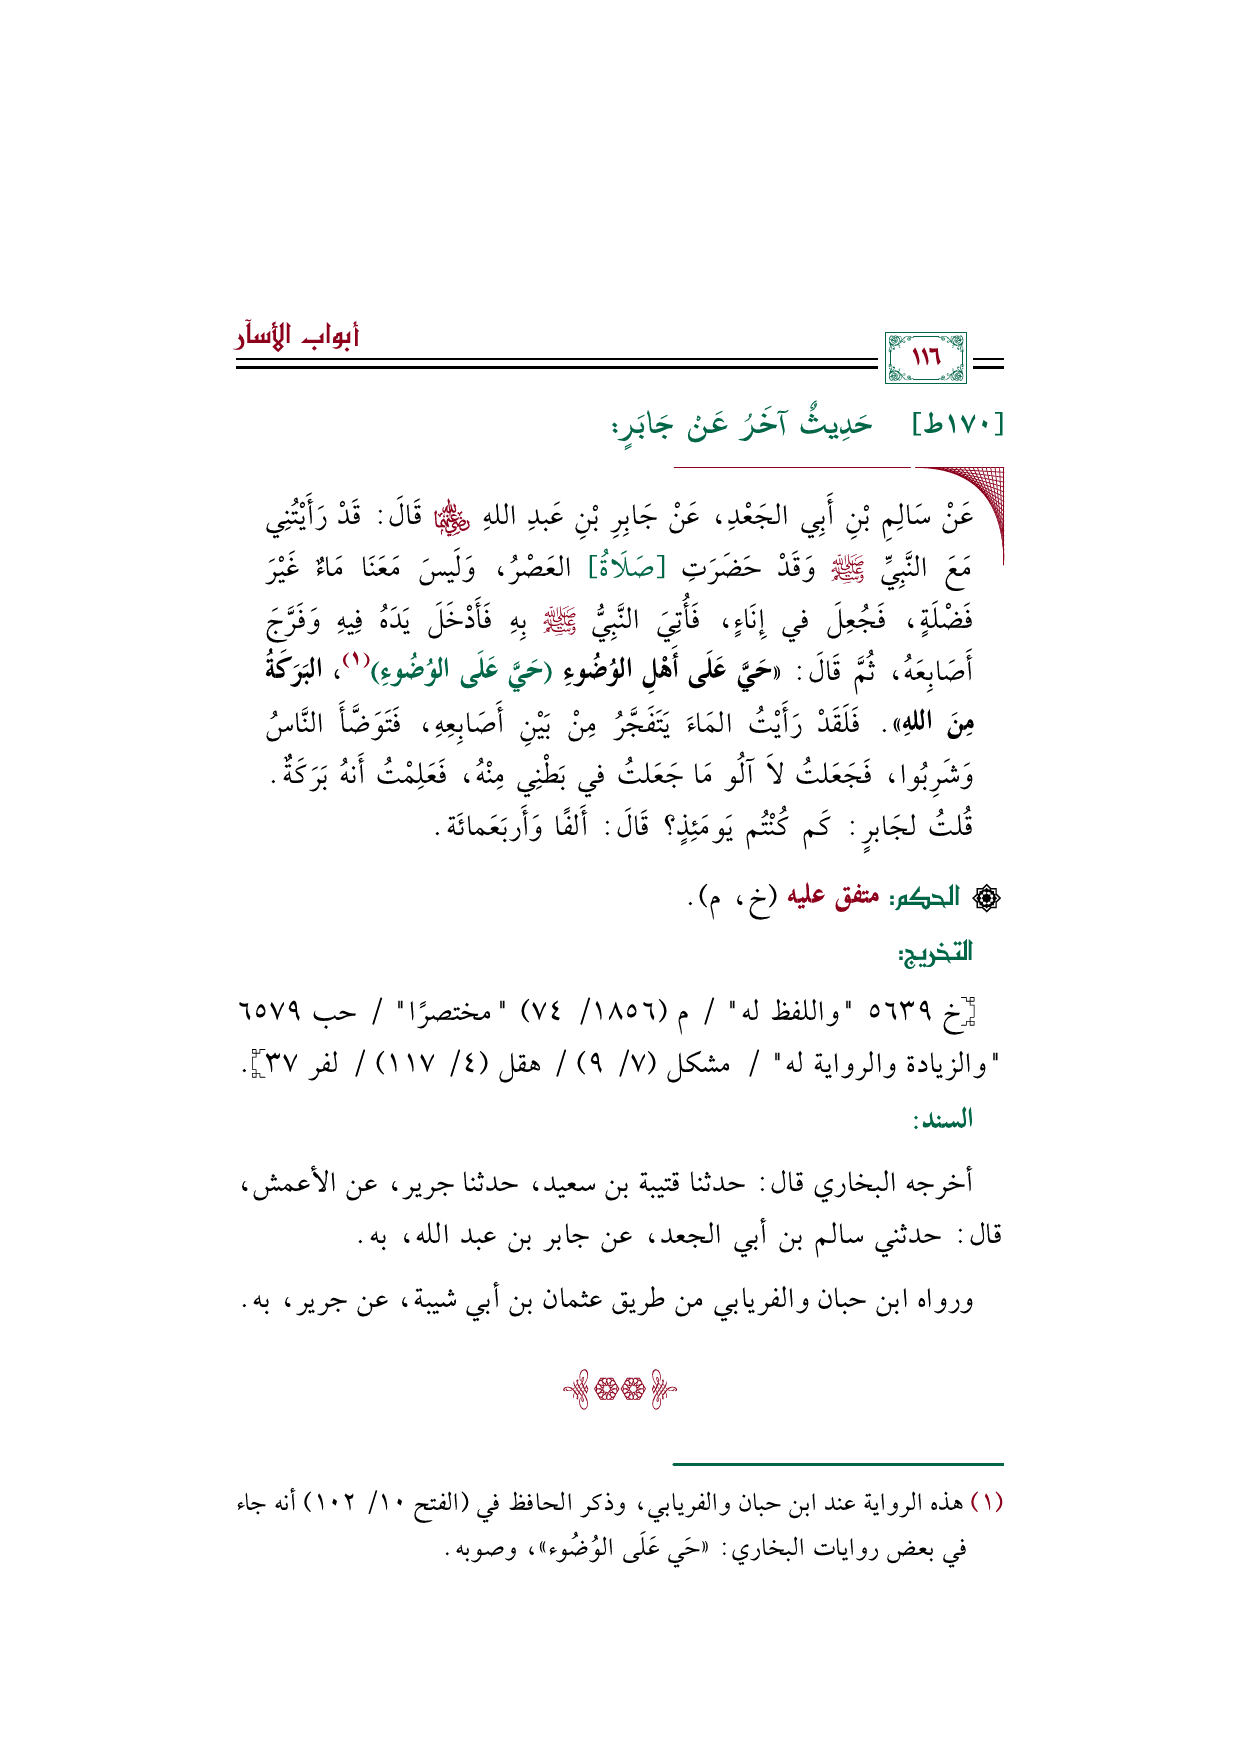 أبواب الأسآر
١١٦
[١٧٠ط] حَدِيثٌ آخَرُ عَنْ جَابَرٍ:
عَنْ سَالِمِ بْنِ أَبِي الجَعْدِ، عَنْ جَابِرِ بْنِ عَبدِ اللهِ ﵁ قَالَ: قَدْ رَأَيْتُنِي
مَعَ النَّبِيِّ ﷺ وَقَدْ حَضَرَتِ [صَلَاةُ] العَصْرُ، وَلَيسَ مَعَنَا مَاءٌ غَيْرَ
فَضْلَةٍ، فَجُعِلَ في إِنَاءٍ، فَأُتِيَ النَّبِيُّ ﷺ بِهِ فَأَدْخَلَ يَدَهُ فِيهِ وَفَرَّجَ
أَصَابِعَهُ، ثُمَّ قَالَ: «حَيَّ عَلَى أَهْلِ الوُضُوءِ (حَيَّ عَلَى الوُضُوءِ)(١)، البَرَكَةُ
مِنَ اللهِ». فَلَقَدْ رَأَيْتُ المَاءَ يَتَفَجَّرُ مِنْ بَيْنِ أَصَابِعِهِ، فَتَوَضَّأَ النَّاسُ
وَشَرِبُوا، فَجَعَلتُ لاَ آلُو مَا جَعَلتُ في بَطْنِي مِنْهُ، فَعَلِمْتُ أَنهُ بَرَكَةٌ.
قُلتُ لجَابرٍ: كَم كُنْتُم يَومَئِذٍ؟ قَالَ: أَلفًا وَأَربَعَمائَة.
الحكم: متفق عليه (خ، م).
التخريج:
[خ ٥٦٣٩ "واللفظ له" / م (١٨٥٦/ ٧٤) "مختصرًا" / حب ٦٥٧٩
"والزيادة والرواية له" / مشكل (٧/ ٩) / هقل (٤/ ١١٧) / لفر ٣٧].
السند:
أخرجه البخاري قال: حدثنا قتيبة بن سعيد، حدثنا جرير، عن الأعمش،
قال: حدثني سالم بن أبي الجعد، عن جابر بن عبد الله، به.
ورواه ابن حبان والفريابي من طريق عثمان بن أبي شيبة، عن جرير، به.
(١) هذه الرواية عند ابن حبان والفريابي، وذكر الحافظ في (الفتح ١٠/ ١٠٢) أنه جاء
في بعض روايات البخاري: «حَي عَلَى الوُضُوء»، وصوبه.